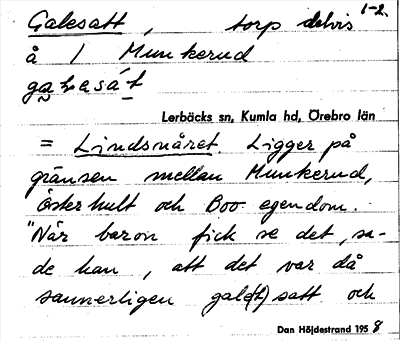 Galesatt, torp delvis 1-2.
å 1 Munkerud
Lerbäcks sn, Kumla hd, Örebro län
= Lindsnåret. Ligger på
gränsen mellan Munkerud,
Österhult och Boo egendom.
"När baron fick se det, sa-
de han, att det var då
sannerligen gal(et)satt och
Dan Höjdestrand 1958